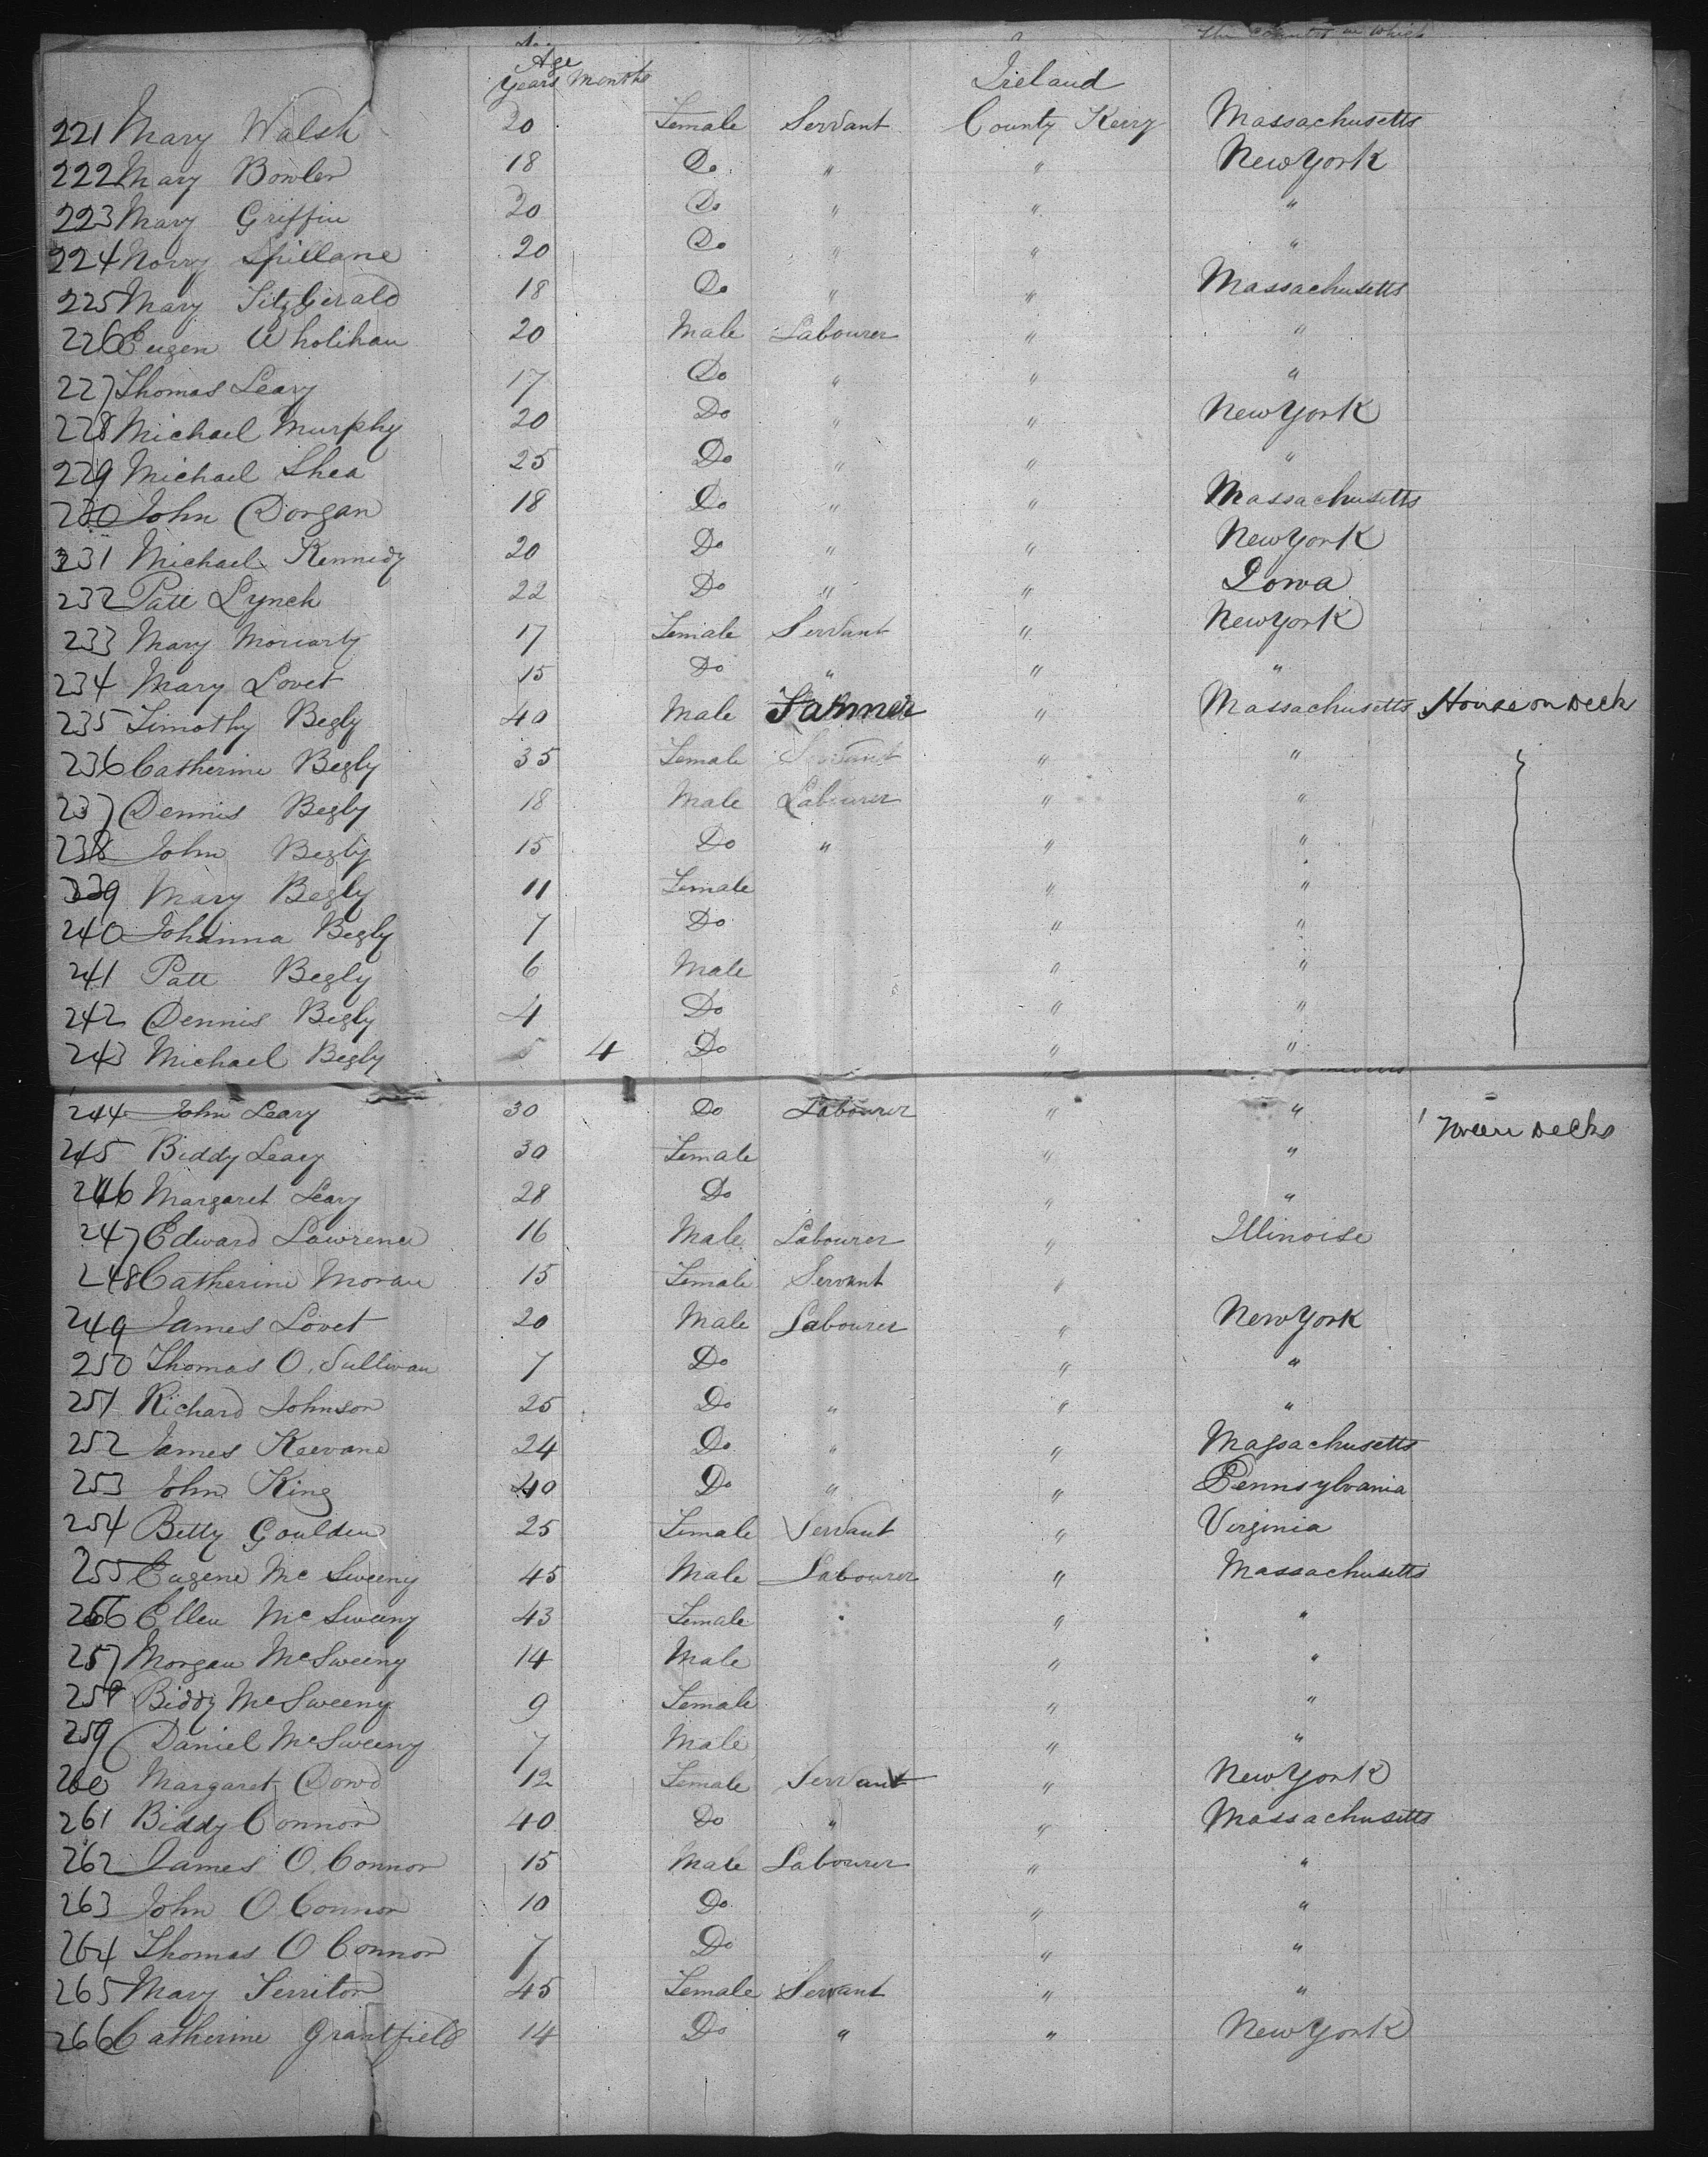 Age
Years Months Ireland
221 Mary Walsh 20 Female Servant County Kerry Massachusetts
222 Mary Bowler 18 Do " " New York
223 Mary Griffin 20 Do " " "
224 Norry Spillane 20 Do " " "
225 Mary Fitzgerald 18 Do " " Massachusetts
226 Eugen O holihan 20 Male Labourer " "
227 Thomas Leary 17 Do " " "
228 Michael Murphy 20 Do " " New York
229 Michael Shea 25 Do " " "
230 John Dorgan 18 Do " " Massachusetts
231 Michael Kennedy 20 Do " " New York
232 Patt Lynch 22 Do " " Iowa
233 Mary Moriarty 17 Female Servant " New York
234 Mary Lovet 15 Do " " "
235 Timothy Begly 40 Male Farmer " Massachusetts House on Deck
236 Catherine Begly 35 Female Servant " "
237 Dennis Begly 18 Male Labourer " "
238 John Begly 15 Do " " "
239 Mary Begly 11 Female " "
240 Johanna Begly 7 Do " "
241 Patt Begly 6 Male " "
242 Dennis Begly 4 Do " "
243 Michael Begly 4 Do " "
244 John Leary 30 Do Labourer " "
245 Biddy Leary 30 Female " " Decks
246 Margaret Leary 28 Do " "
247 Edward Lawrence 16 Male Labourer " Illinoise
248 Catherine Moran 15 Female Servant "
249 James Lovet 20 Male Labourer " New York
250 Thomas O. Sullivan 7 Do " "
251 Richard Johnson 25 Do " " "
252 James Keevane 24 Do " " Massachusetts
253 John King 40 Do " " Pennsylvania
254 Betty Goulden 25 Female Servant " Virginia
255 Eugene Mc Sweeny 45 Male Labourer " Massachusetts
256 Ellen Mc Sweeny 43 Female " "
257 Morgan McSweeny 14 Male " "
258 Biddy McSweeny 9 Female " "
259 Daniel McSweeny 7 Male " "
260 Margaret Dowd 12 Female Servant " New York
261 Biddy Connor 40 Do " " Massachusetts
262 James O. Connor 15 Male Labourer " "
263 John O Connor 10 Do " "
264 Thomas O Connor 7 Do " "
265 Mary Ferriton 45 Female Servant " "
266 Catherine Grantfield 14 Do " " New York